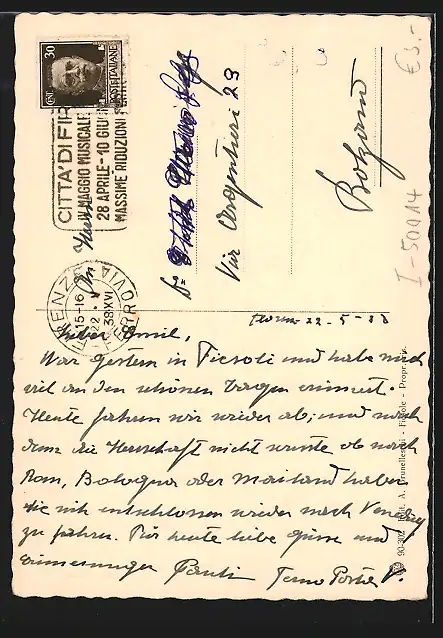 CENT. 30
POSTE ITALIANE
CITTÀ DI FIR
IV MAGGIO MUSICALE
28 APRILE - 10 GIUGNO
MASSIME RIDUZIONI
FERROVIA
15-16
22 . V
38 XVI
Herrn
Via Argentieri 29
Bolzano
€ 3.-
I-50014
Florenz 22-5-38
Lieber Emil,
War gestern in Fiesoli und habe mich
viel an den schönen Tagen erinnert.
Heute fahren wir wieder ab, und nach
dem die Herrschaft nicht wuste ob nach
Rom, Bologna oder Mailand haben
sie sich entschlossen wieder nach Venedig
zu fahren. Für heute liebe Grüsse und
Erinnerungen Pauli Fermo Posta V.
90-302 Edit. A. Brunelleschi - Fiesole - Propr. ris.